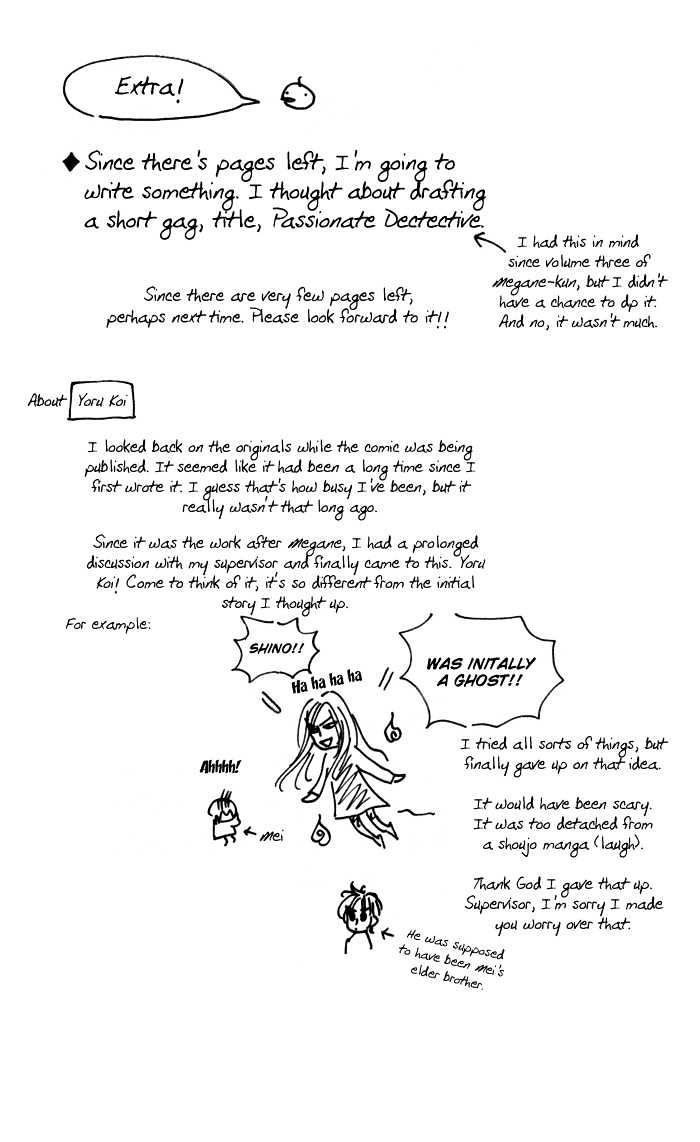 Extra!
◆ Since there's pages left, I'm going to
write something. I thought about drafting
a short gag, title, Passionate Dectective.
I had this in mind
since volume three of
Megane-kun, but I didn't
have a chance to dp it.
And no, it wasn't much.
Since there are very few pages left,
perhaps next time. Please look forward to it!!
About Yoru Koi
I looked back on the originals while the comic was being
published. It seemed like it had been a long time since I
first wrote it. I guess that's how busy I've been, but it
really wasn't that long ago.
Since it was the work after Megane, I had a prolonged
discussion with my supervisor and finally came to this. Yoru
Koi! Come to think of it, it's so different from the initial
story I thought up.
For example:
SHINO!!
WAS INITALLY
A GHOST!!
Ha ha ha ha
Ahhhh!
Mei
I tried all sorts of things, but
finally gave up on that idea.
It would have been scary.
It was too detached from
a shoujo manga (laugh).
Thank God I gave that up.
Supervisor, I'm sorry I made
you worry over that.
He was supposed
to have been Mei's
elder brother.